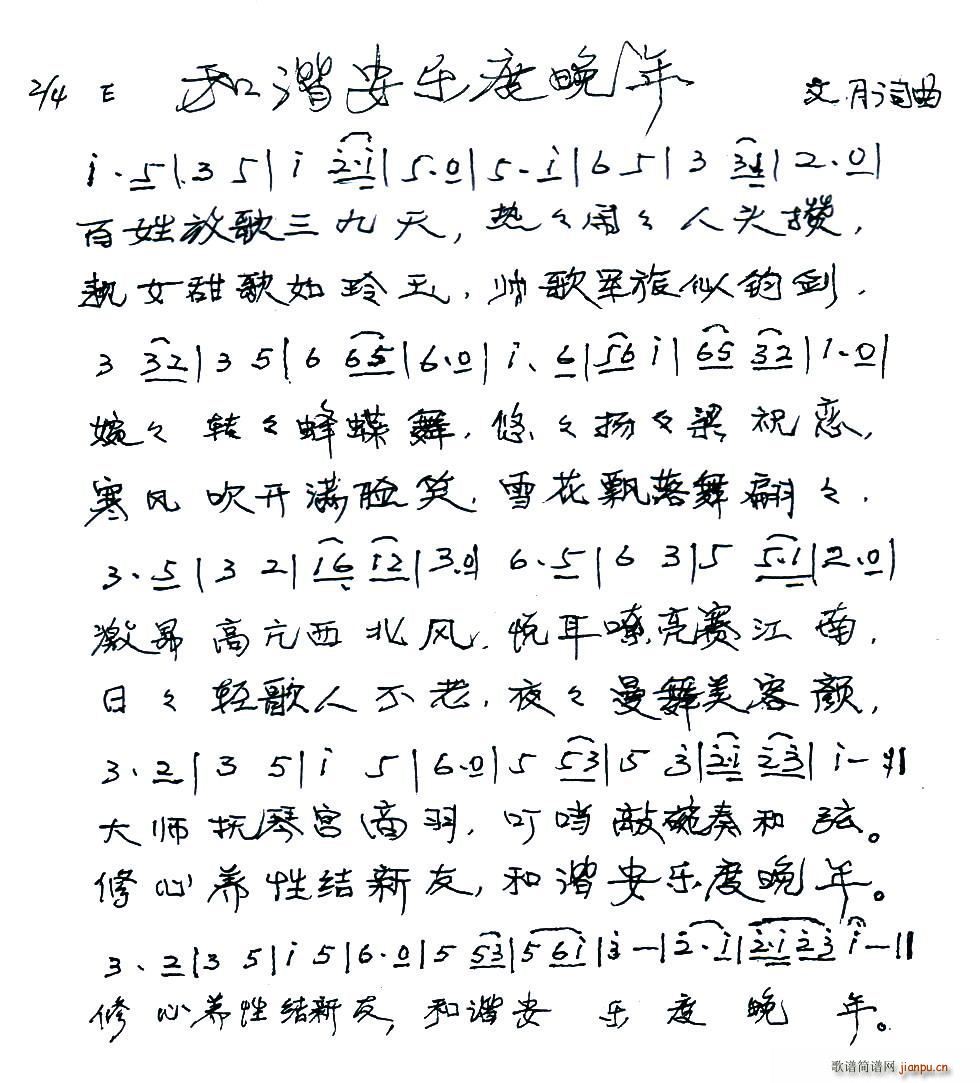 2/4 E 和谐安乐度晚年 文月词曲
i·5|3 5|i 2·i|5·0|5·i|6 5|3 31|2·0|
百姓放歌三九天，热々闹々人头攒，
女甜歌如玲玉，帅歌军旅似钧剑．
3 32|3 5|6 65|6·0|i·6|56 i|65 32|1·0|
婉々转々蜂蝶舞．悠々扬々梁祝恋，
寒风吹开满脸笑．雪花飘落舞翩々．
3·5|3 2|16 12|3·0|6·5|6 3|5 5·1|2·0|
激昂高亢西北风．悦耳嘹亮赛江南，
日々轻歌人不老．夜々曼舞美容颜，
3·2|3 5|i 5|6·0|5 53|5 3|2·i 23|i-‖
大师抚琴宫商羽．叮当敲碗奏和弦。
修心养性结新友，和谐安乐度晚年。
3·2|3 5|i 5|6·0|5 53|5 6i|3-|2·i|2·i 23 i-‖
修心养性结新友，和谐安乐度晚年。
歌谱简谱网 jianpu.cn